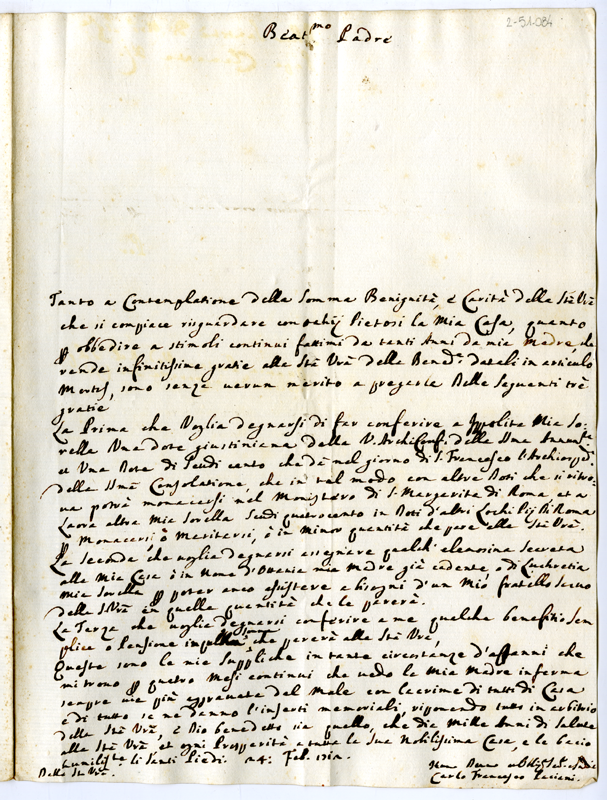 2-51.084
Beat.mo Padre
Tanto a Contemplatione della Somma Benignità, e Carità della Stà Vrà
che si compiace risguardare con ochij Pietosi la Mia Casa, quanto
p obbedire a stimoli continui fattimi da tanti Anni da mia Madre che
rende infinitissime gratie alla Stà Vrà della Bened.e datali in articulo
Mortis, sono senza verun merito a pregarla delle Seguenti trè
gratie
La Prima che Voglia degnarsi di far conferire a Ippolita Mia So-
rella Una dote giustiniana della V. Archiconf. della SSma Annunta
et Una Dote di Scudi cento che dà nel giorno di S. Francesco l'Archior
della SSmà Consolatione, che in tal modo con altre Doti che si ritro-
va potrà monacarsi nel Monistero di S. Margarita di Roma et a
Laora altra Mia Sorella Scudi quatrocento in Doti d'altri Lochi Pij di Roma
p Monacarsi, ò Maritarsi, ò in minor quantità che pare alla Stà Vrà.
La Seconda che voglia degnarsi assegnare qualch' elemosina Secreta
alla Mia Casa ò in Nome d' mia Madre già cadente, o di Luchretia
Mia Sorella p poter anco assistere a bisogni d'un Mio fratello Servo
della S. Vrà in quella quantità che le pererà.
La Terza che voglia degnarsi conferire a me qualche benefitio Sem
plice o Pensione che pererà alla Stà Vrà,
Queste sono le mie Suppliche in tante circostanze d'affanni che
mi trovo p quatro Mesi continui che vedo la Mia Madre inferma
sempre via più aggravata dal Male con lacrime di tutti di Casa
e di tutto se ne danno l'inserti memoriali, riponendo tutto in arbitrio
della Stà Vrà, e Dio benedetto sia quello, che dia Mille Anni di Salute
alla Stà Vrà, et ogni Prosperità a tutta la Sua Nobilissima Casa, e le bacio
humilte li Santi Piedi 24: Feb.
Della Stà Vrà.
Carlo Francesco